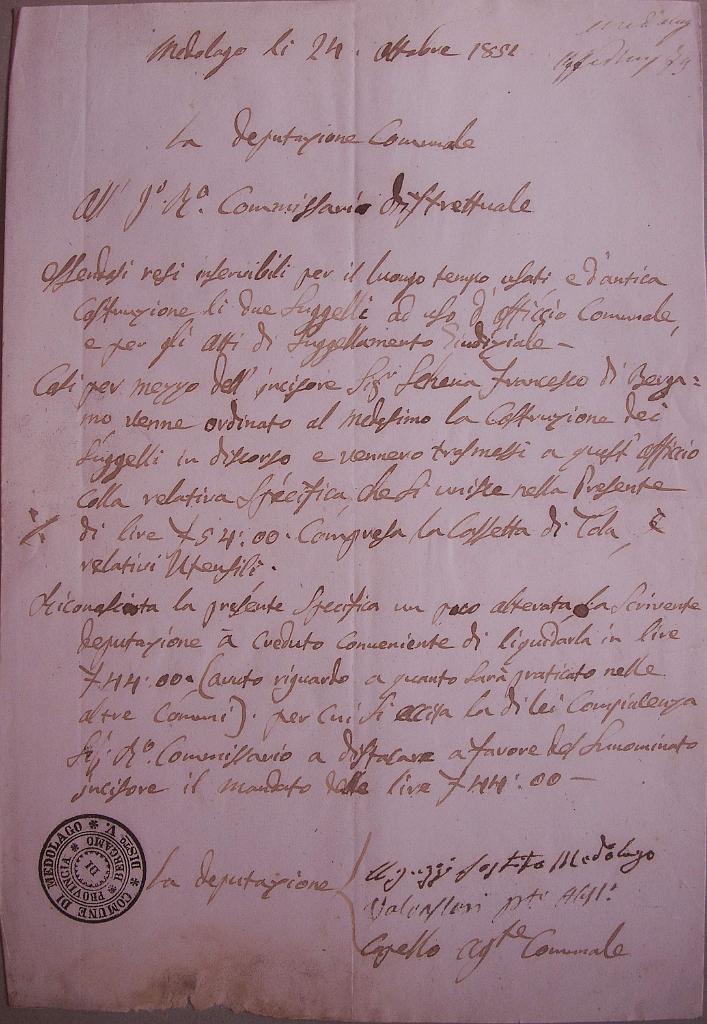 Medolago li 24. Ottobre 1852
La Deputazione Comunale
All' I.° R.° Commissario Distrettuale
Essendosi resi inservibili per il luongo tempo usati, e d'antica
Costruzione li due Suggelli ad uso d'officcio Comunale,
e per gli atti di Suggellamento Giudiziale -
Così per mezzo dell' incisore Sigr Schena Francesco di Berga=
mo venne ordinato al Medesimo la Costruzione dei
Suggelli in discorso e vennero trasmessi a quest' officcio
Colla relativa Specifica che si unisce nella Presente
di lire £54:00. Compresa la Cassetta di Tola, e
relativi Utensili.
Riconosciuta la presente Specifica un poco alterata, la Scrivente
Deputazione à creduto conveniente di liquidarla in lire
£44:00 (avuto riguardo a quanto sarà praticato nelle
altre Comuni). per cui si la di lei Compiacenza
Sig. R.° Commissario a distacare a favore del Sunominato
incisore il Mandato delle lire £44:00 -
La Deputazione
Medolago
Valsecchi
Capello agte Comunale
COMUNE DI MEDOLAGO * DISTO V. *
PROVINCIA DI BERGAMO